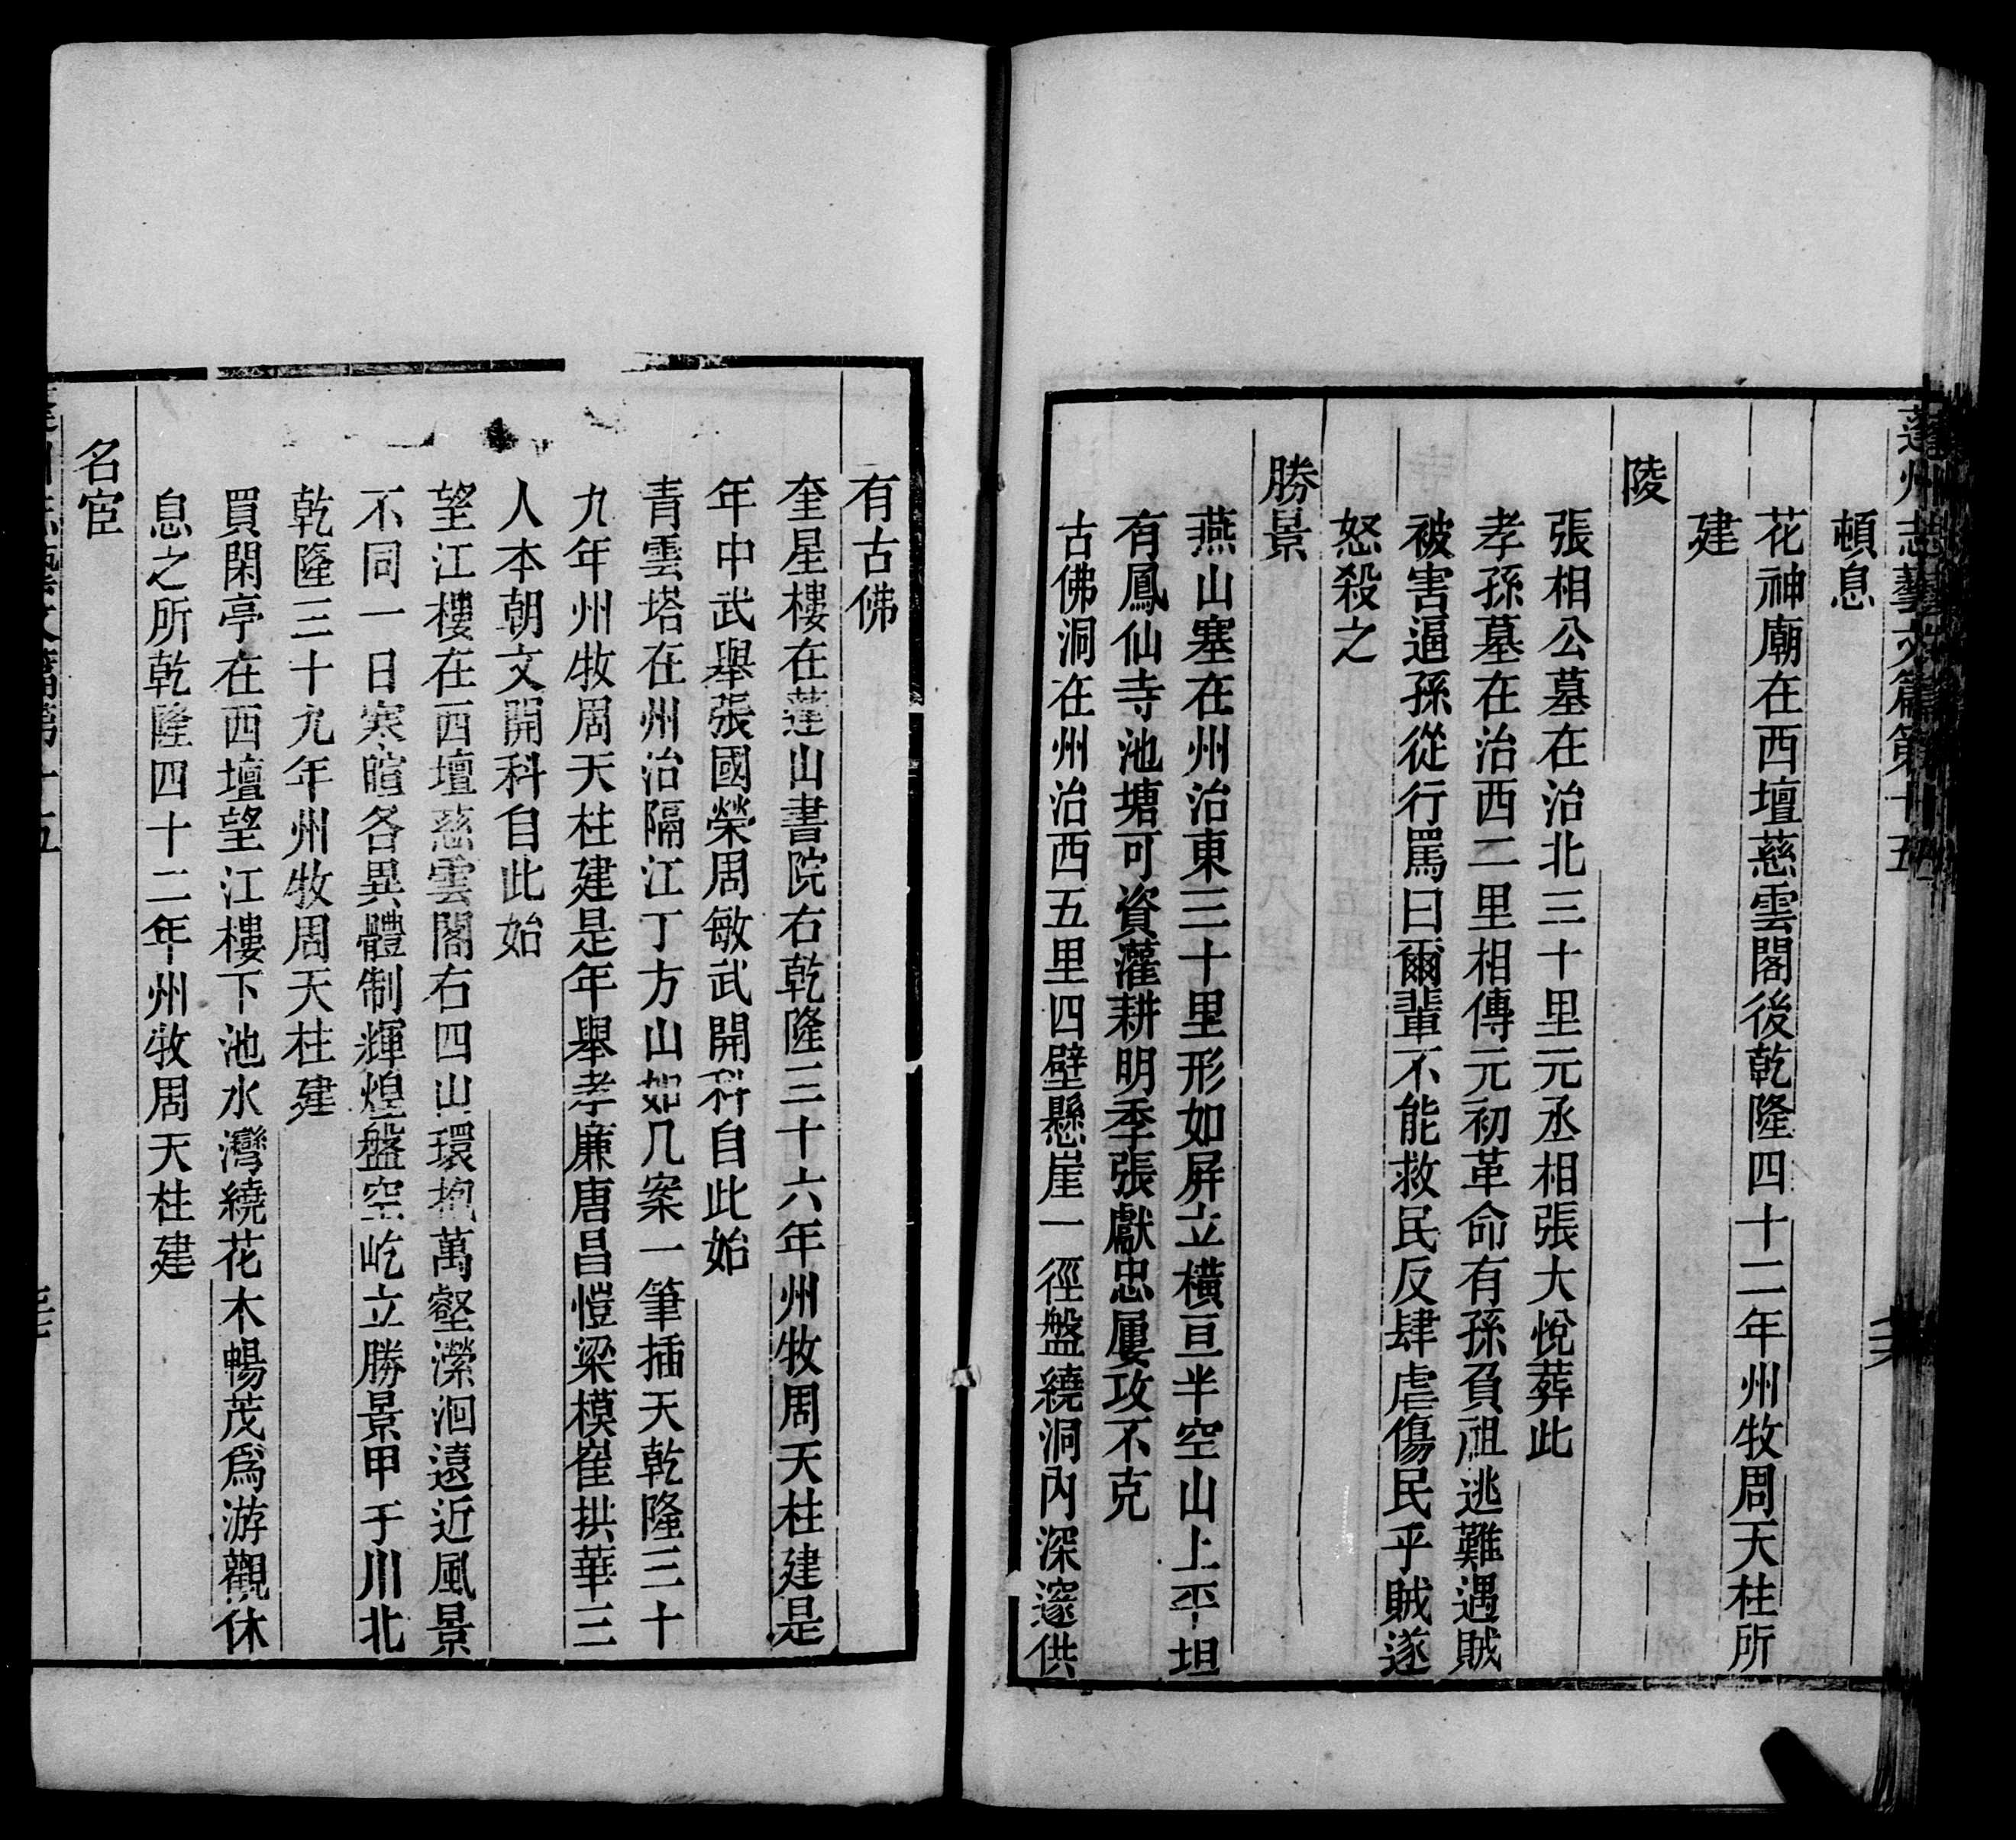 蓬州志藝文篇第十五
頓息
花神廟在西壇慈雲閣後乾隆四十二年州牧周天柱所
建
陵
張相公墓在治北三十里元丞相張大悅葬此
孝孫墓在治西二里相傳元初革命有孫負祖逃難遇賊
被害逼孫從行罵曰爾輩不能救民反肆虐傷民乎賊遂
怒殺之
勝景
燕山塞在州治東三十里形如屏立橫亘半空山上平坦
有鳳仙寺池塘可資灌耕明季張獻忠屢攻不克
古佛洞在州治西五里四壁懸崖一徑盤繞洞內深邃供
有古佛
奎星樓在蓮山書院右乾隆三十六年州牧周天柱建是
年中武舉張國榮周敏武開科自此始
青雲塔在州治隔江丁方山如几案一筆插天乾隆三十
九年州牧周天柱建是年舉孝廉唐昌愷梁模崔拱華三
人本朝文開科自此始
望江樓在西壇慈雲閣右四山環抱萬壑瀠洄遠近風景
不同一日寒暄各異體制輝煌盤空屹立勝景甲于川北
乾隆三十九年州牧周天柱建
買閑亭在西壇望江樓下池水灣繞花木暢茂爲游觀休
息之所乾隆四十二年州牧周天柱建
名宦